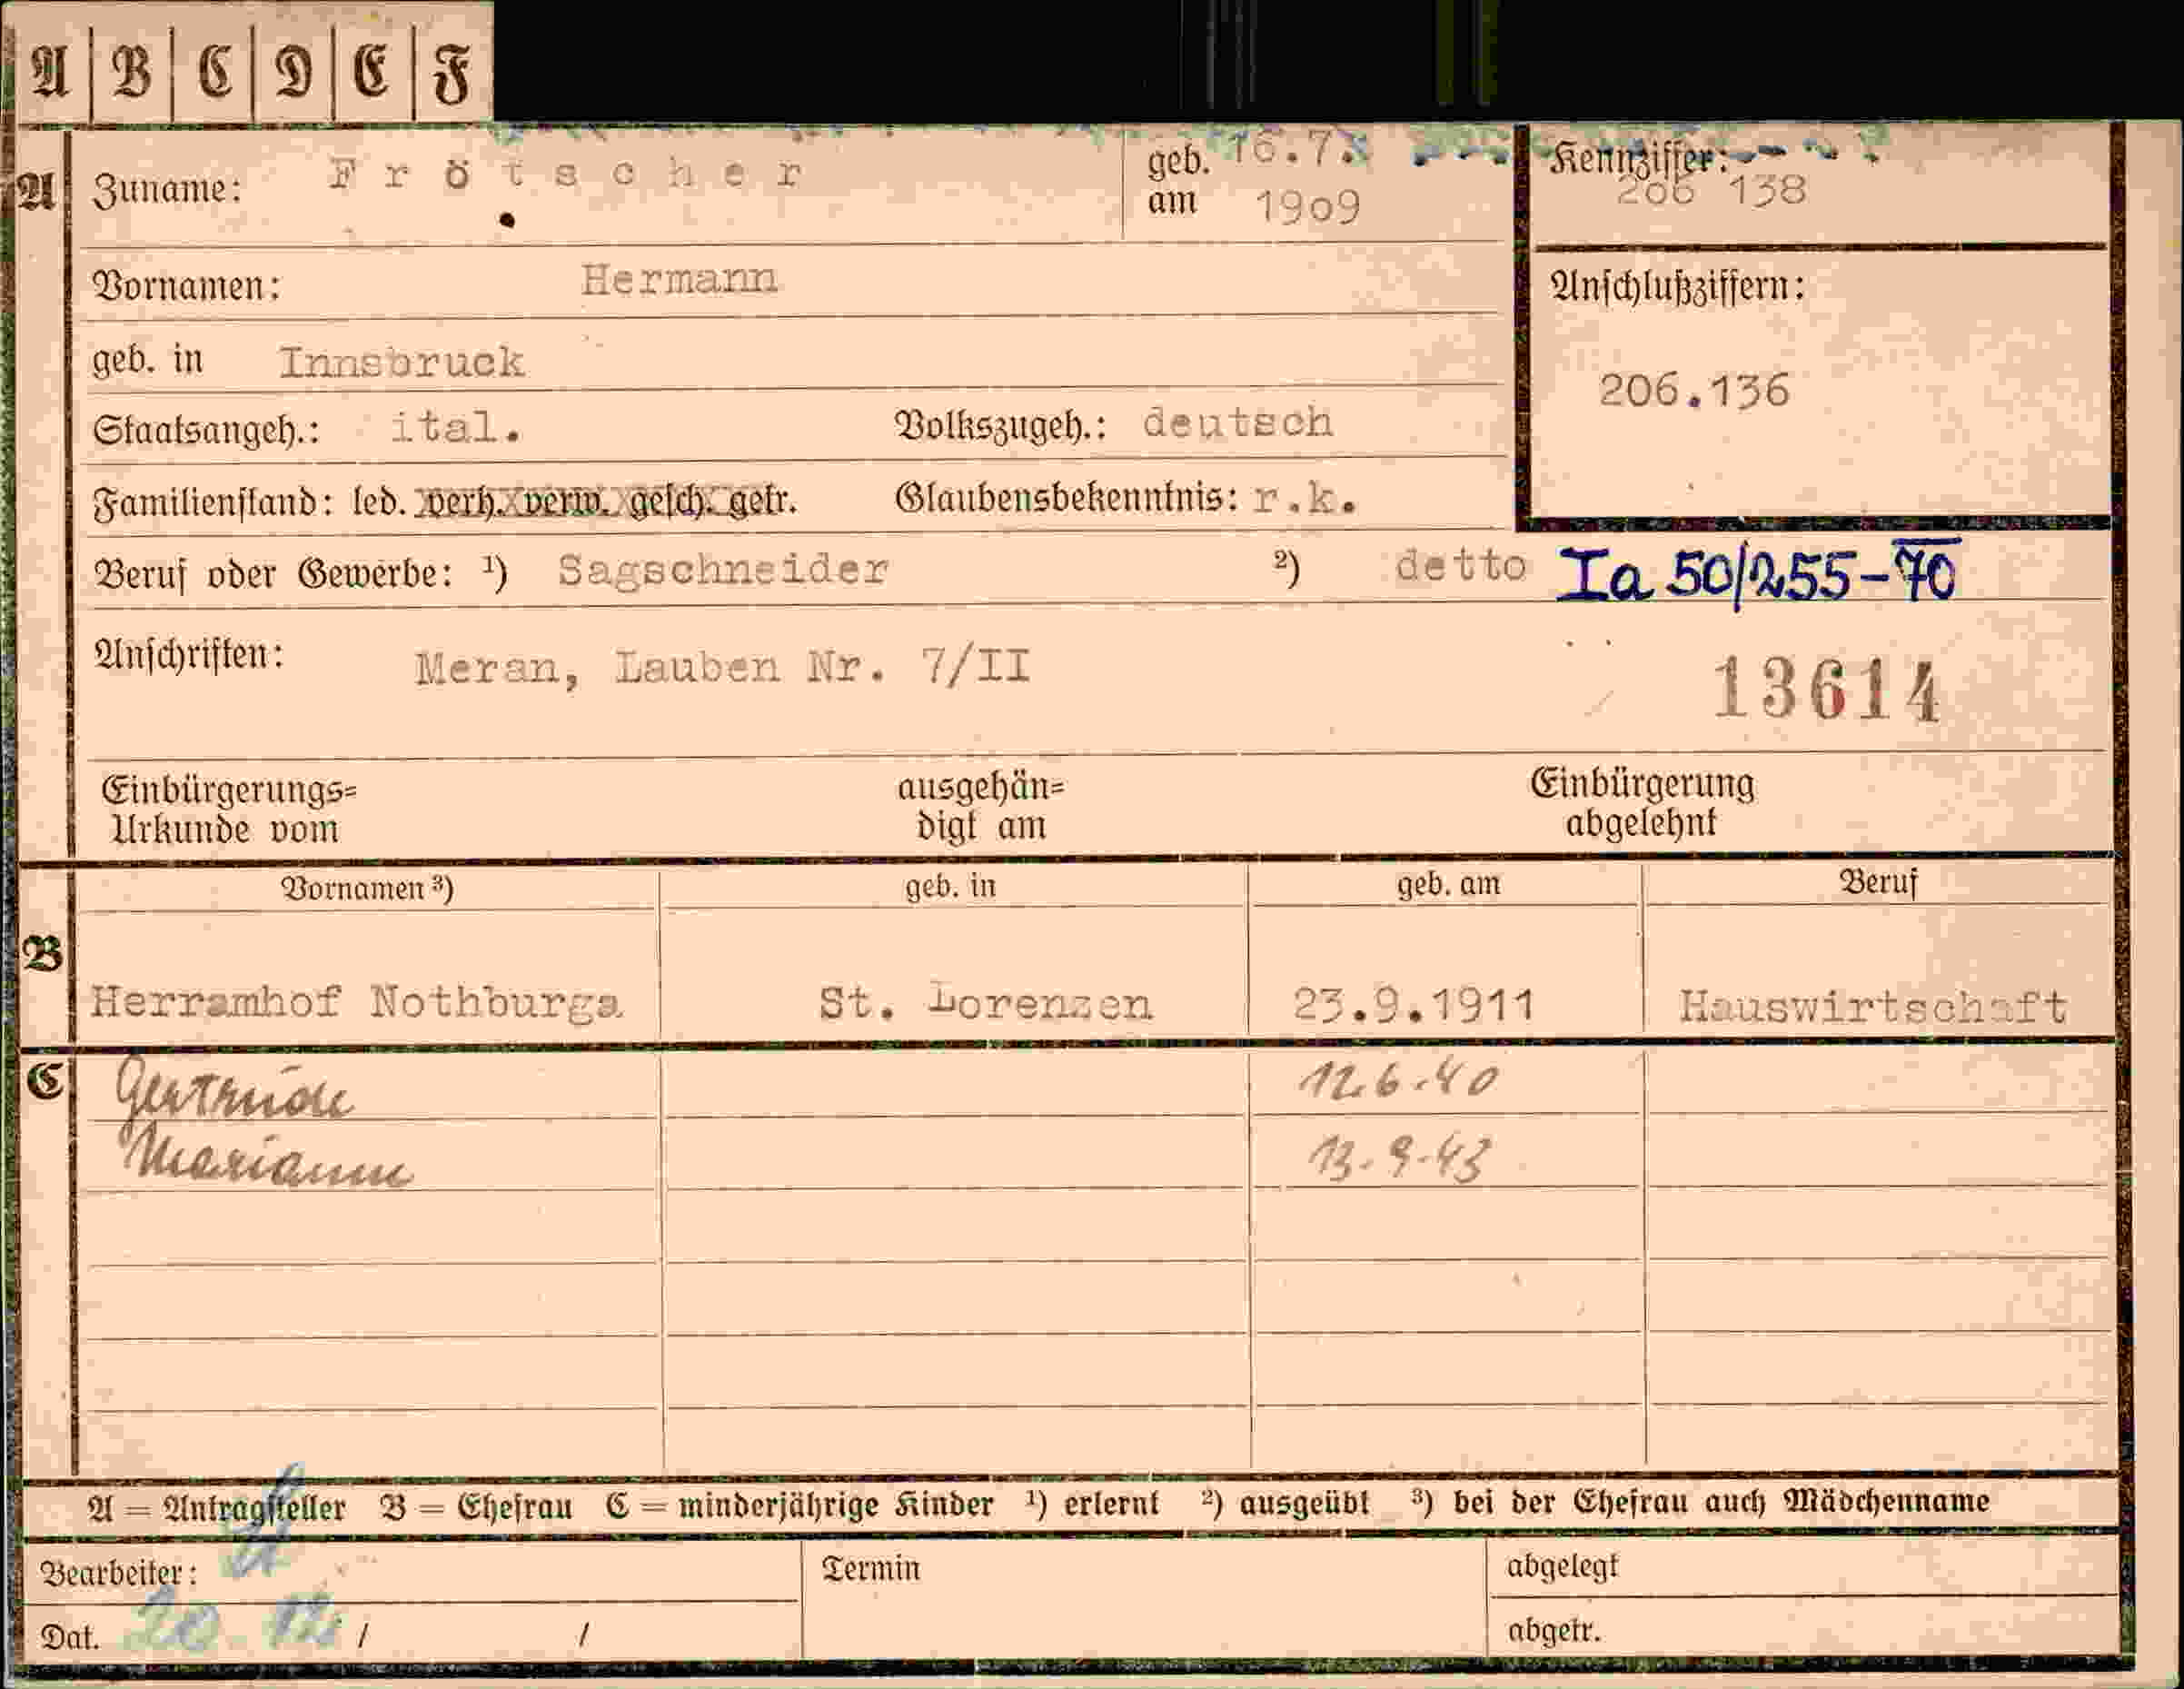 A B C D E F
A Zuname: Frötscher geb. am 16.7. 1909 Kennziffer: 206 138
Vornamen: Hermann Anschlußziffern:
geb. in Innsbruck 206.136
Staatsangeh.: ital. Volkszugeh.: deutsch
Familienstand: led. verh. verw. gesch. getr. Glaubensbekenntnis: r.k.
Beruf oder Gewerbe: ¹) Sagschneider ²) detto Ia 50/255-70
Anschriften: Meran, Lauben Nr. 7/II 13614
Einbürgerungs= ausgehän= Einbürgerung
Urkunde vom digt am abgelehnt
Vornamen ³) geb. in geb. am Beruf
B Herramhof Nothburga St. Lorenzen 23.9.1911 Hauswirtschaft
C Gertrude 12.6.40
Marianne 13.9.43
A = Antragsteller B = Ehefrau C = minderjährige Kinder ¹) erlernt ²) ausgeübt ³) bei der Ehefrau auch Mädchenname
Bearbeiter: Termin abgelegt
Dat. 20. 12 / / abgetr.